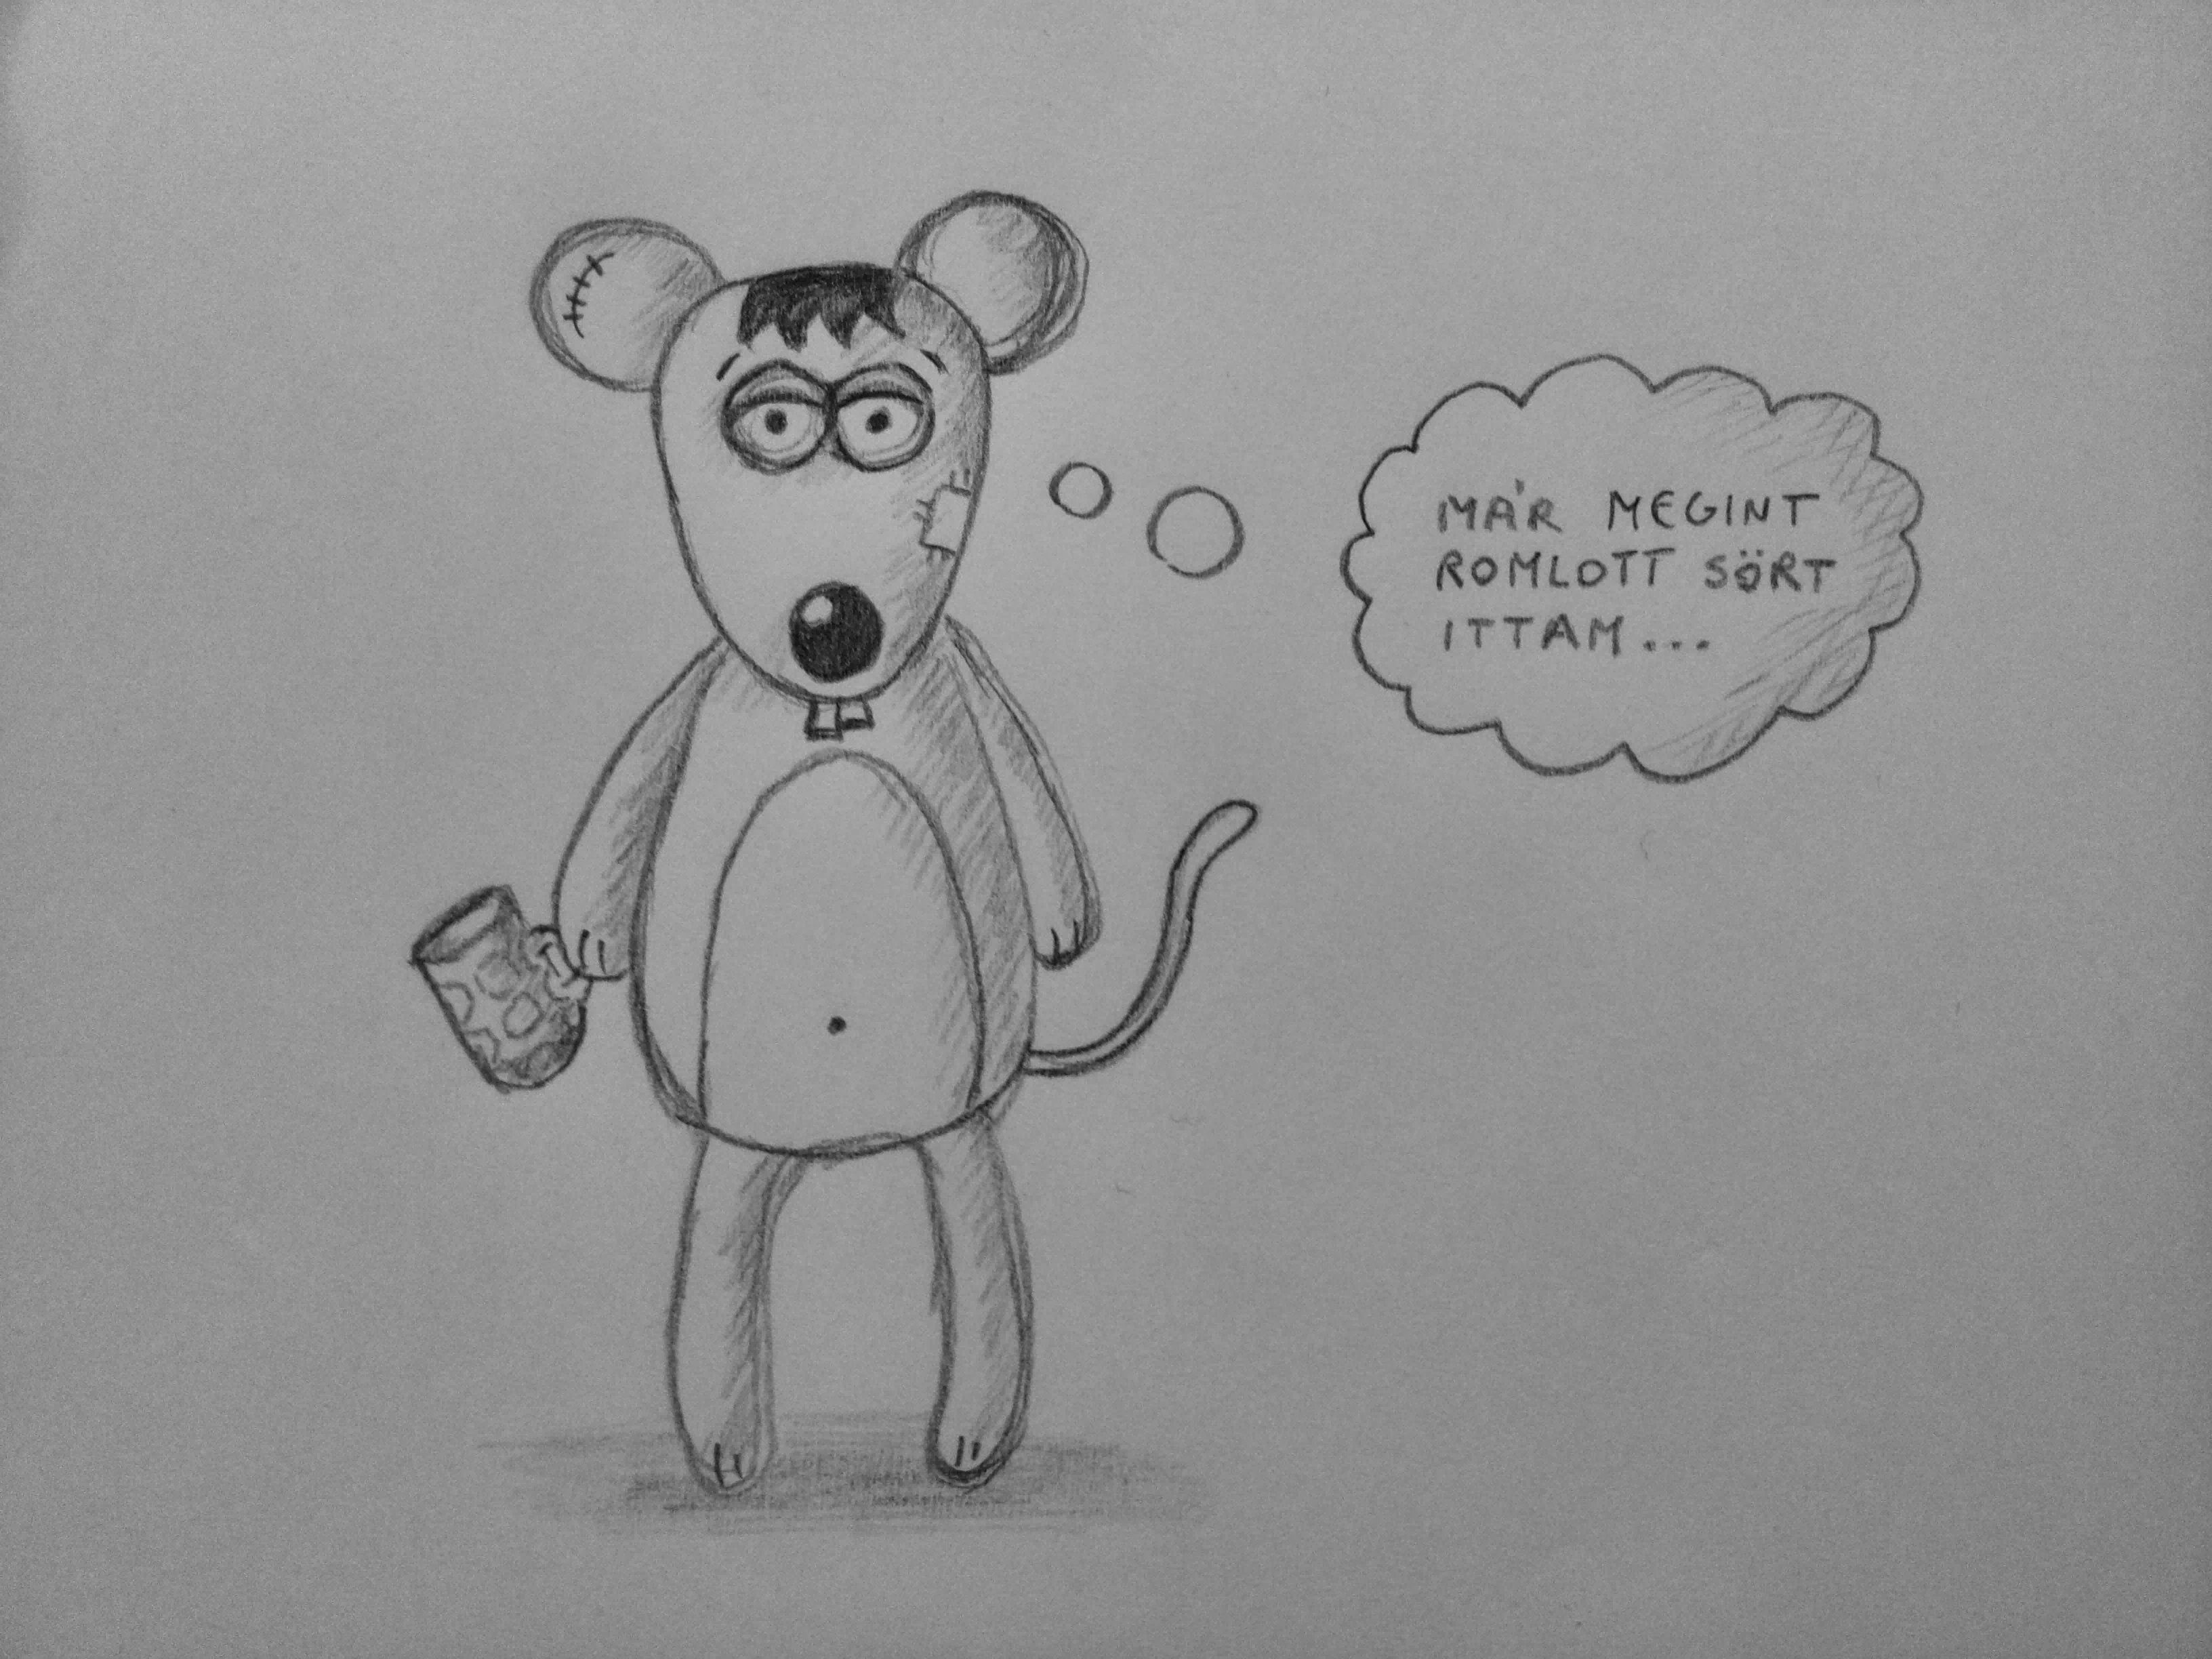 MÁR MEGINT
ROMLOTT SÖRT
ITTAM...